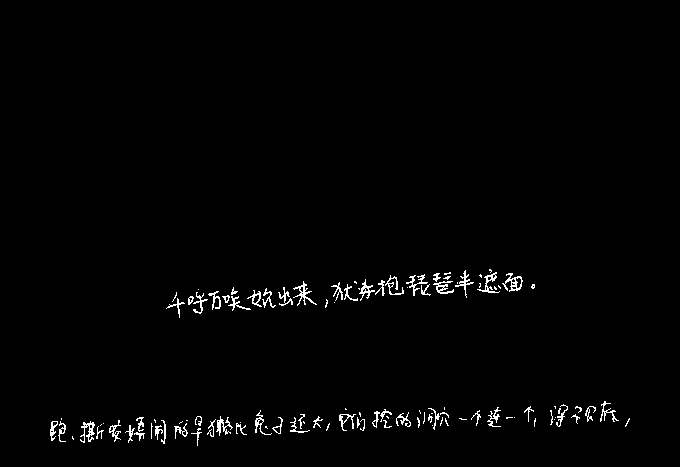 千呼万唤始出来,犹抱琵琶半遮面。
跑、撕咬嬉闹的旱獭比兔子还大,它们挖的洞穴一个连一个,深不见底,